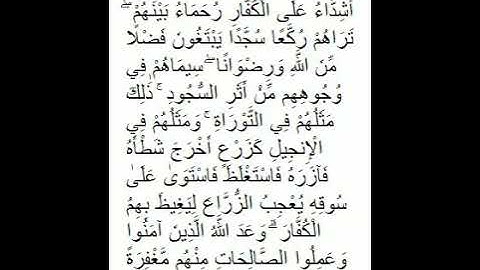 أَشِدَّاءُ عَلَى الْكُفَّارِ رُحَمَاءُ بَيْنَهُمْ ۖ
تَرَاهُمْ رُكَّعًا سُجَّدًا يَبْتَغُونَ فَضْلًا
مِّنَ اللَّهِ وَرِضْوَانًا ۖ سِيمَاهُمْ فِي
وُجُوهِهِم مِّنْ أَثَرِ السُّجُودِ ۚ ذَٰلِكَ
مَثَلُهُمْ فِي التَّوْرَاةِ ۚ وَمَثَلُهُمْ فِي
الْإِنجِيلِ كَزَرْعٍ أَخْرَجَ شَطْأَهُ
فَآزَرَهُ فَاسْتَغْلَظَ فَاسْتَوَىٰ عَلَىٰ
سُوقِهِ يُعْجِبُ الزُّرَّاعَ لِيَغِيظَ بِهِمُ
الْكُفَّارَ ۗ وَعَدَ اللَّهُ الَّذِينَ آمَنُوا
وَعَمِلُوا الصَّالِحَاتِ مِنْهُم مَّغْفِرَةً